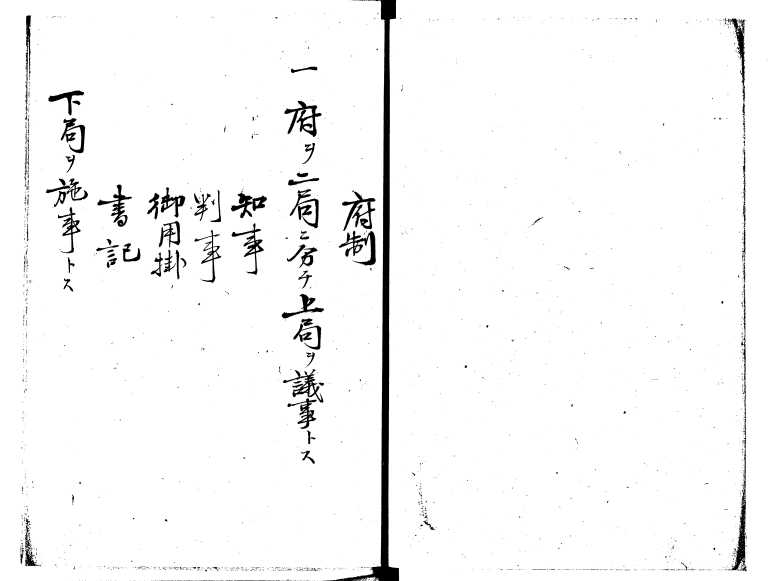 府制
一府ヲ二局ニ分チ上局ヲ議事トス
知事
判事
御用掛
書記
下局ヲ施事トス